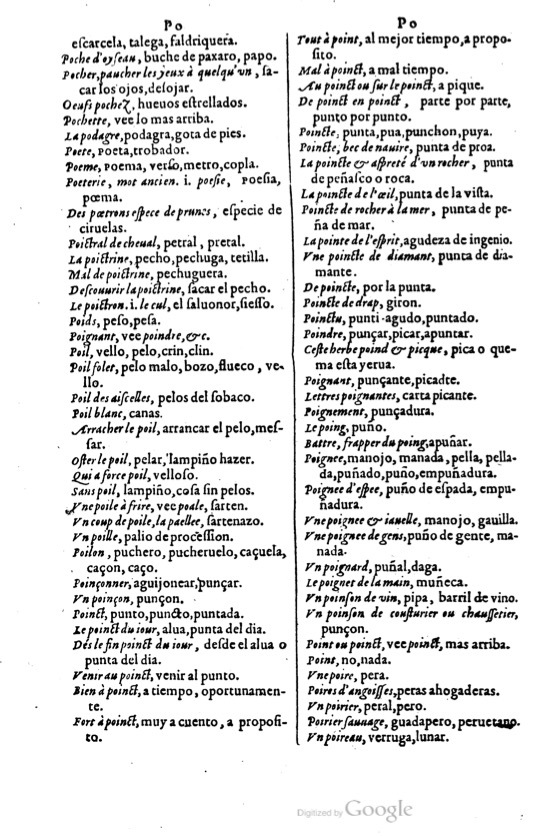 Po
eſcarcela, talega, faldriquera.
Poche d'oyſeau, buche de paxaro, papo.
Pocher, paucher les yeux à quelqu'vn, ſa-
car los ojos, deſojar.
Oeufs pochez, hueuos eſtrellados.
Pochette, vee lo mas arriba.
La podagre, podagra, gota de pies.
Poete, poeta, trobador.
Poeme, poema, verſo, metro, copla.
Poeterie, mot ancien. i. poeſie, poeſia,
poema.
Des pœtrons eſpece de prunes, eſpecie de
ciruelas.
Poictral de cheual, petral, pretal.
La poictrine, pecho, pechuga, tetilla.
Mal de poictrine, pechuguera.
Deſcouurir la poictrine, ſacar el pecho.
Le poictron. i. le cul, el ſaluonor, ſieſſo.
Poids, peſo, peſa.
Poignant, vee poindre, &c.
Poil, vello, pelo, crin, clin.
Poil folet, pelo malo, bozo, flueco, ve-
llo.
Poil des aiſcelles, pelos del ſobaco.
Poil blanc, canas.
Arracher le poil, arrancar el pelo, meſ-
ſar.
Oſter le poil, pelar, lampiño hazer.
Qui a force poil, velloſo.
Sans poil, lampiño, coſa ſin pelos.
Vne poile à frire, vee poale, ſarten.
Vn coup de poile, la paellee, ſartenazo.
Vn poille, palio de proceſſion.
Poilon, puchero, pucheruelo, caçuela,
caçon, caço.
Poinçonner, aguijonear, punçar.
Vn poinçon, punçon.
Poinct, punto, puncto, puntada.
Le poinct du iour, alua, punta del dia.
Dés le fin poinct du iour, deſde el alua o
punta del dia.
Venir au poinct, venir al punto.
Bien à poinct, a tiempo, oportunamen-
te.
Fort à poinct, muy a cuento, a propoſi-
to.
Po
Tout à point, al mejor tiempo, a propo-
ſito.
Mal à poinct, a mal tiempo.
Au poinct ou ſur le poinct, a pique.
De poinct en poinct, parte por parte,
punto por punto.
Poincte, punta, pua, punchon, puya.
Poincte, bec de nauire, punta de proa.
La poincte & aſpreté d'vn rocher, punta
de peñaſco o roca.
La poincte de l'œil, punta de la viſta.
Poincte de rocher à la mer, punta de pe-
ña de mar.
La pointe de l'eſprit, agudeza de ingenio.
Vne poincte de diamant, punta de dia-
mante.
De poincte, por la punta.
Poincte de drap, giron.
Poinctu, punti-agudo, puntado.
Poindre, punçar, picar, apuntar.
Ceſte herbe poind & picque, pica o que-
ma eſta yerua.
Poignant, punçante, picãte.
Lettres poignantes, carta picante.
Poignement, punçadura.
Le poing, puño.
Battre, frapper du poing, apuñar.
Poignee, manojo, manada, pella, pella-
da, puñado, puño, empuñadura.
Poignee d'eſpee, puño de eſpada, empu-
ñadura.
Vne poignee & iauelle, manojo, gauilla.
Vne poignee de gens, puño de gente, ma-
nada.
Vn poignard, puñal, daga.
Le poignet de la main, muñeca.
Vn poinſon de vin, pipa, barril de vino.
Vn poinſon de couſturier ou chauſſetier,
punçon.
Point ou poinct, vee poinct, mas arriba.
Point, no, nada.
Vne poire, pera.
Poires d'angoiſſes, peras ahogaderas.
Vn poirier, peral, pero.
Poirier ſauuage, guadapero, peruetano.
Vn poireau, verruga, lunar.
Digitized by Google